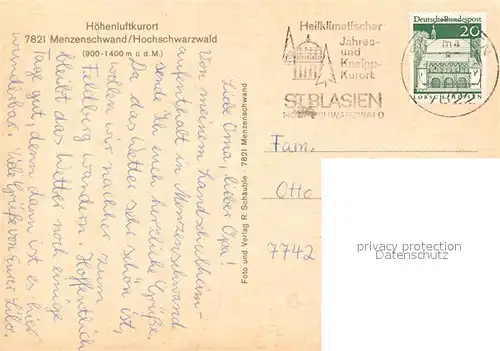 Höhenluftkurort
7821 Menzenschwand/Hochschwarzwald
(900-1400 m ü.d.M.)
Liebe Oma, lieber Opa!
Von meinem Landschulheim-
aufenthalt in Menzenschwand
sende ich euch herzliche Grüße.
Da das Wetter sehr schön ist,
wollen wir nachher zum
Feldberg wandern. Hoffentlich
bleibt das Wetter noch einige
Tage gut, denn dann ist es hier
wunderbar. Viele Grüße von Eurer
Foto und Verlag R. Schäuble · 7821 Menzenschwand
Heilklimatischer
Jahres-
und
Kneipp-
Kurort
ST. BLASIEN
HOCHSCHWARZWALD
Deutsche Bundespost
20
LORSCH/HESSEN
Fam.
Otto
7742
privacy protection
Datenschutz